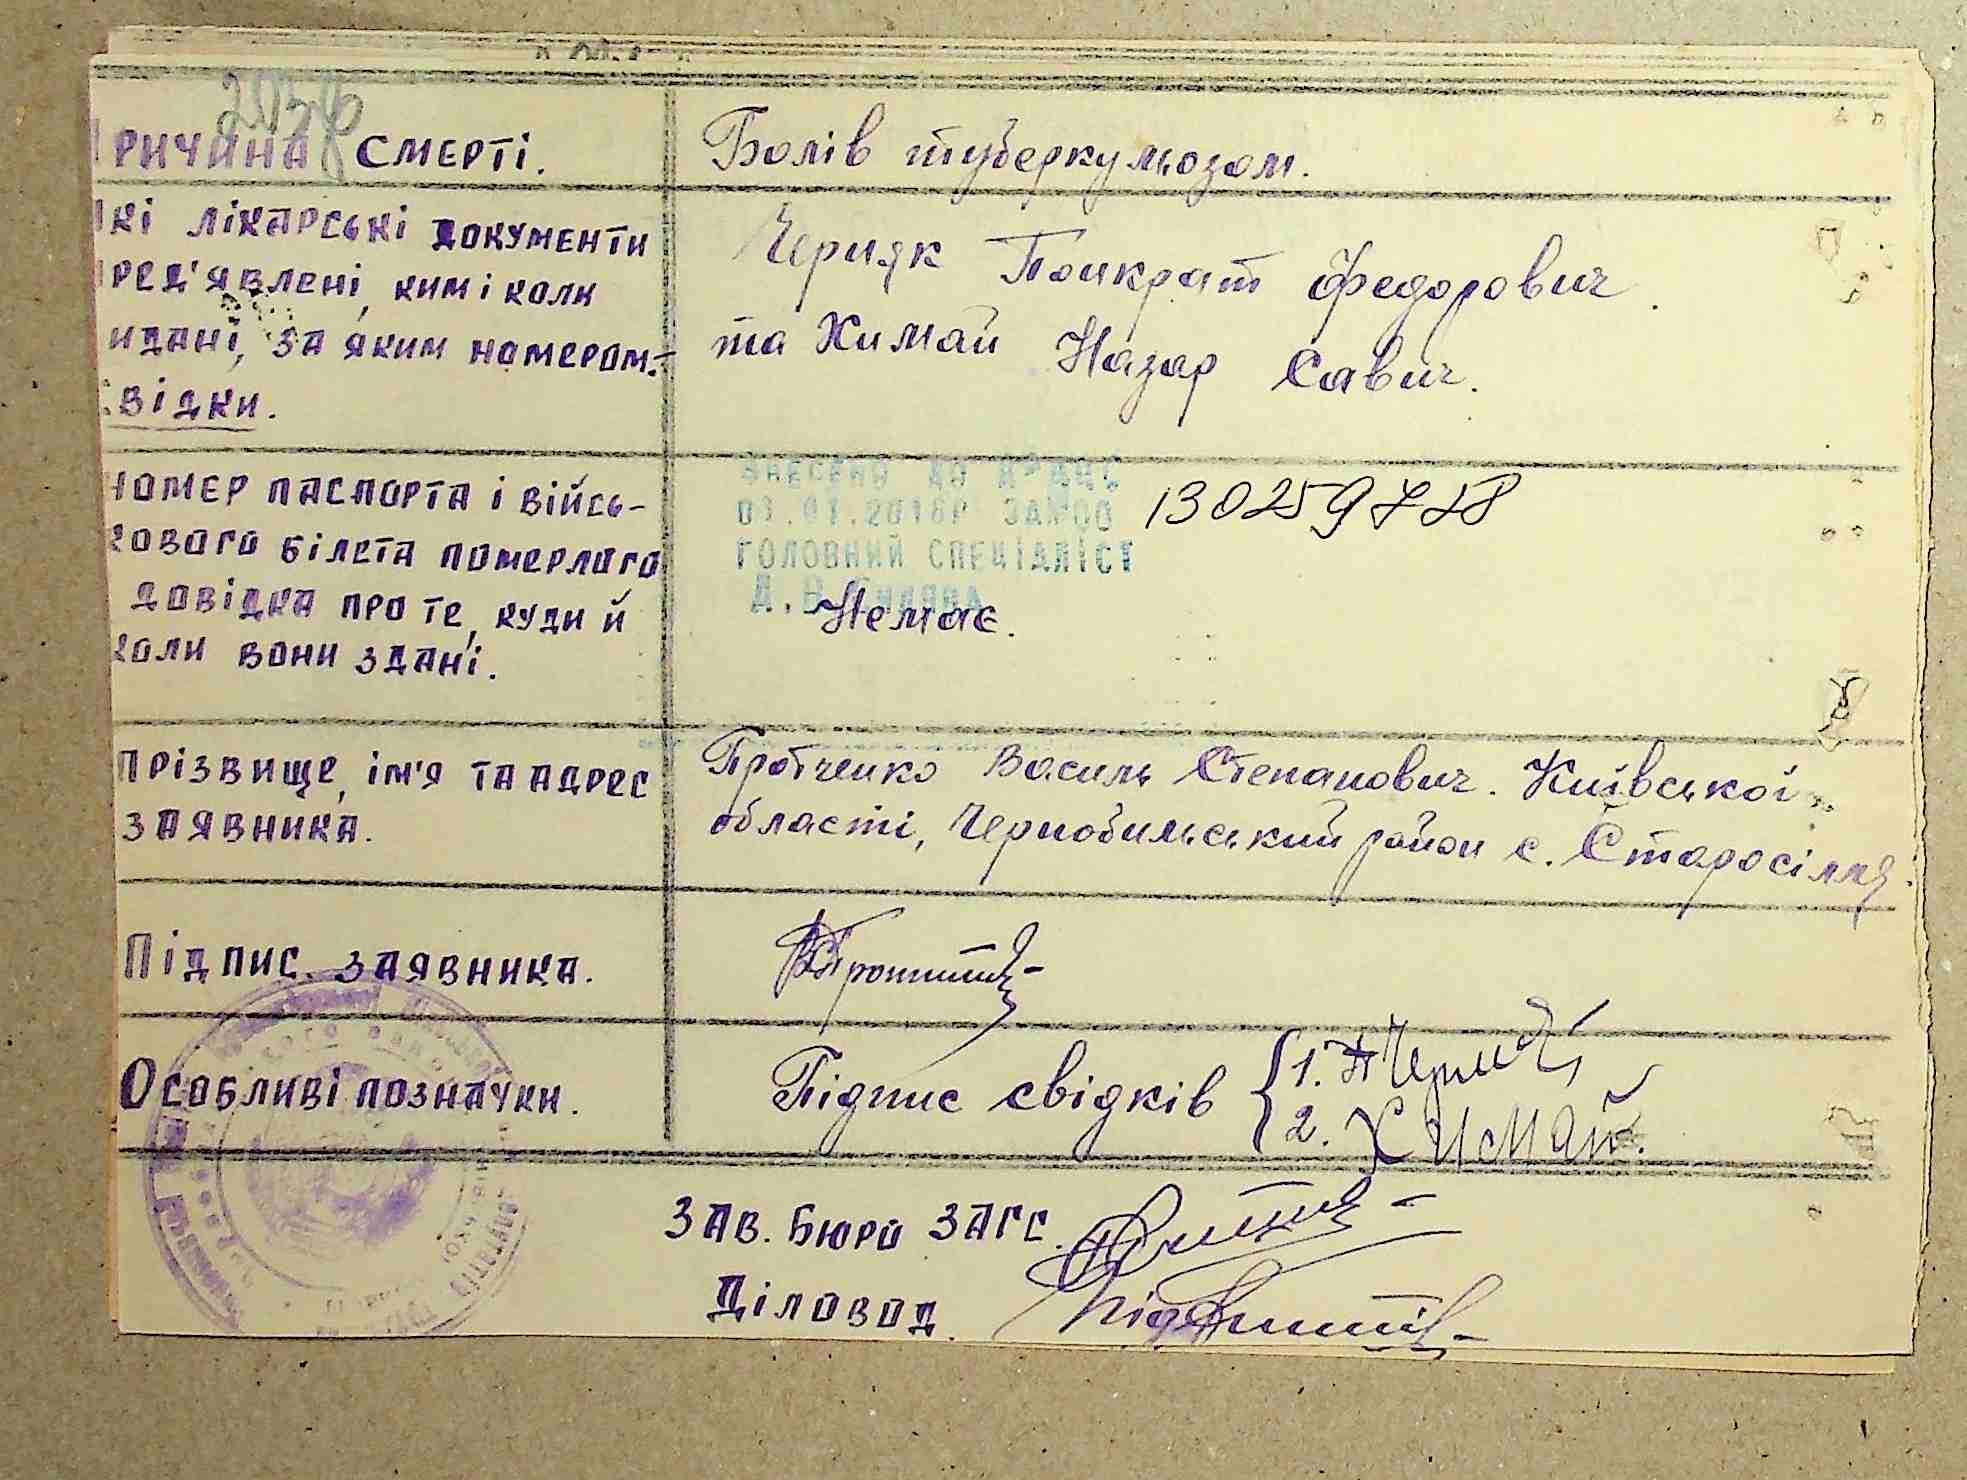 ПРИЧИНА СМЕРТІ.
Болів туберкульозом.
ЯКІ ЛІКАРСЬКІ ДОКУМЕНТИ
ПРЕД'ЯВЛЕНІ, КИМ І КОЛИ
ВИДАНІ, ЗА ЯКИМ НОМЕРОМ.-
СВІДКИ.
Черняк Понкрат Федорович
та Химай Назар Савич.
НОМЕР ПАСПОРТА І ВІЙСЬ-
КОВОГО БІЛЕТА ПОМЕРЛОГО
ДОВІДКА ПРО ТЕ, КУДИ Й
КОЛИ ВОНИ ЗДАНІ.
ВНЕСЕНО ДО
ЗА №00 130259728
ГОЛОВНИЙ СПЕЦІАЛІСТ
Немає.
ПРІЗВИЩЕ, ІМ'Я ТА АДРЕС
ЗАЯВНИКА.
Василь Степанович. Київської
області, Чернобильський район с. Старосілля.
ПІДПИС. ЗАЯВНИКА.
ОСОБЛИВІ ПОЗНАЧКИ.
Підпис свідків 1.
2. Химай.
ЗАВ. БЮРО ЗАГС.
ДІЛОВОД.